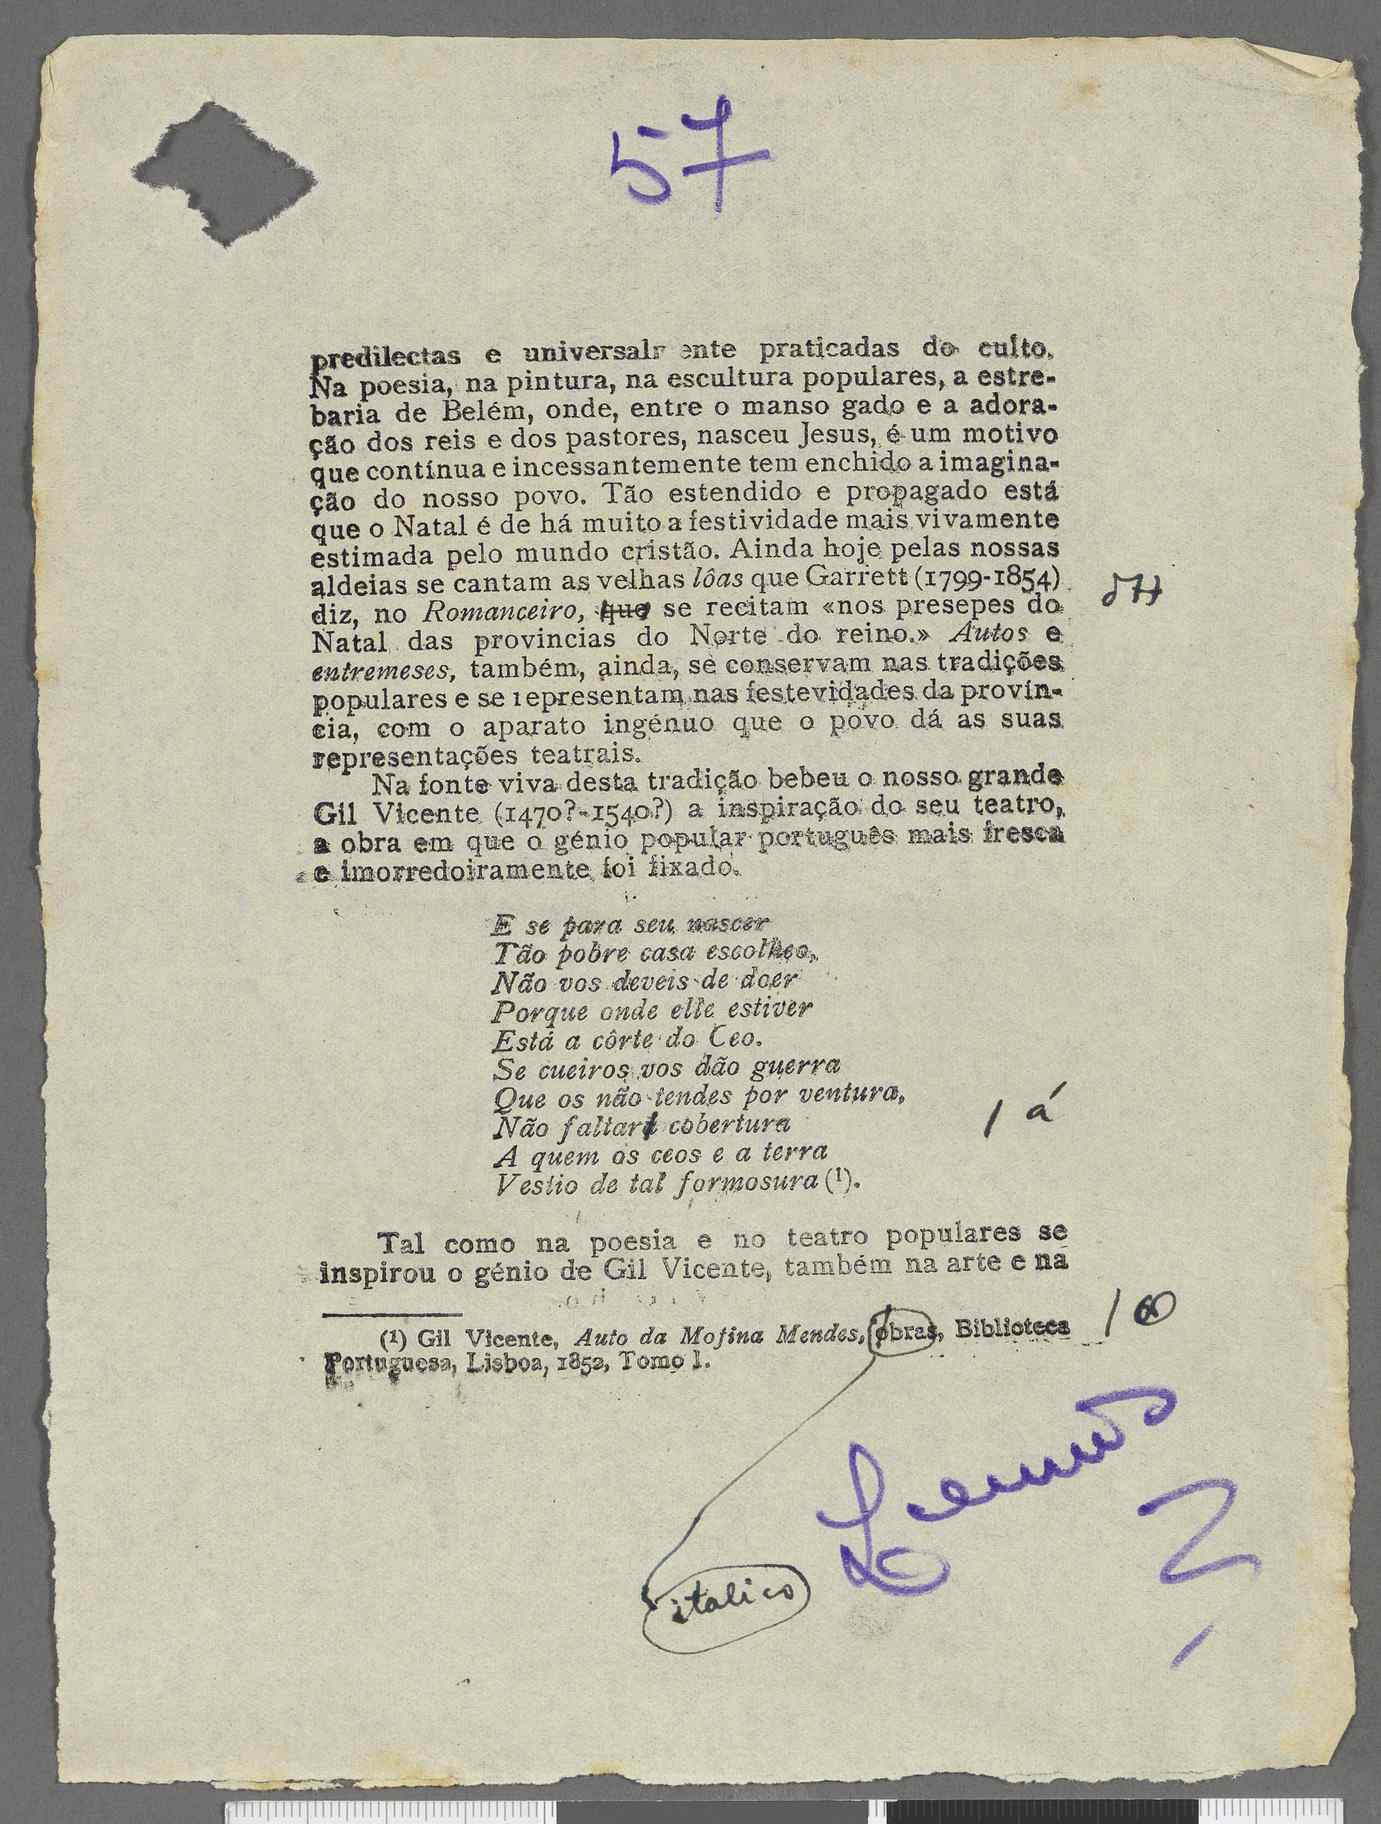 57
predilectas e universalmente praticadas do culto.
Na poesia, na pintura, na escultura populares, a estre-
baria de Belém, onde, entre o manso gado e a adora-
ção dos reis e dos pastores, nasceu Jesus, é um motivo
que contínua e incessantemente tem enchido a imagina-
ção do nosso povo. Tão estendido e propagado está
que o Natal é de há muito a festividade mais vivamente
estimada pelo mundo cristão. Ainda hoje pelas nossas
aldeias se cantam as velhas lôas que Garrett (1799-1854)
diz, no Romanceiro, que se recitam «nos presepes do
Natal das provincias do Norte do reino.» Autos e
entremeses, também, ainda, se conservam nas tradições
populares e se representam nas festevidades da provín-
cia, com o aparato ingénuo que o povo dá as suas
representações teatrais.
Na fonte viva desta tradição bebeu o nosso grande
Gil Vicente (1470?-1540?) a inspiração do seu teatro,
a obra em que o génio popular português mais fresca
e imorredoiramente foi fixado.
E se para seu nascer
Tão pobre casa escolheo,
Não vos deveis de doer
Porque onde elle estiver
Está a côrte do Ceo.
Se cueiros vos dão guerra
Que os não tendes por ventura,
Não faltará cobertura / á
A quem os ceos e a terra
Vestio de tal formosura (¹).
Tal como na poesia e no teatro populares se
inspirou o génio de Gil Vicente, também na arte e na
(¹) Gil Vicente, Auto da Mofina Mendes, obras, Biblioteca
Portuguesa, Lisboa, 1852, Tomo I.
italico